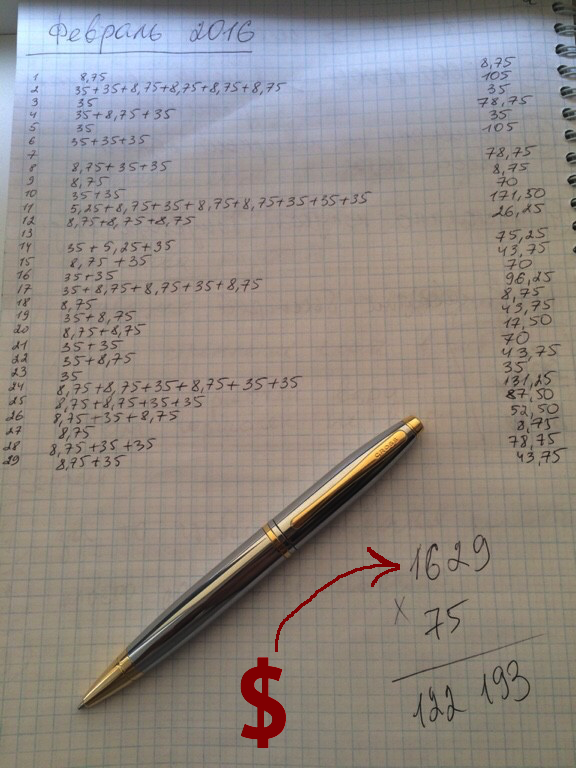 Февраль 2016
1 8,75 8,75
2 35+35+8,75+8,75+8,75+8,75 105
3 35 35
4 35+8,75+35 78,75
5 35 35
6 35+35+35 105
7
8 8,75+35+35 78,75
9 8,75 8,75
10 35+35 70
11 5,25+8,75+35+8,75+8,75+35+35+35 171,50
12 8,75+8,75+8,75 26,25
13
14 35+5,25+35 75,25
15 8,75+35 43,75
16 35+35 70
17 35+8,75+8,75+35+8,75 96,25
18 8,75 8,75
19 35+8,75 43,75
20 8,75+8,75 17,50
21 35+35 70
22 35+8,75 43,75
23 35 35
24 8,75+8,75+35+8,75+35+35 131,25
25 8,75+8,75+35+35 87,50
26 8,75+35+8,75 52,50
27 8,75 8,75
28 8,75+35+35 78,75
29 8,75+35 43,75
CROSS
1629
x 75
122 193
$